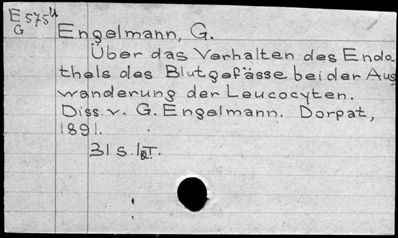 E575u
G
Engelmann, G.
Über das Verhalten des Endo
thels des Blutgefässe bei der Aus
wanderung der Leucocyten.
Diss. v. G. Engelmann. Dorpat,
1891.
31 S. 1 T.